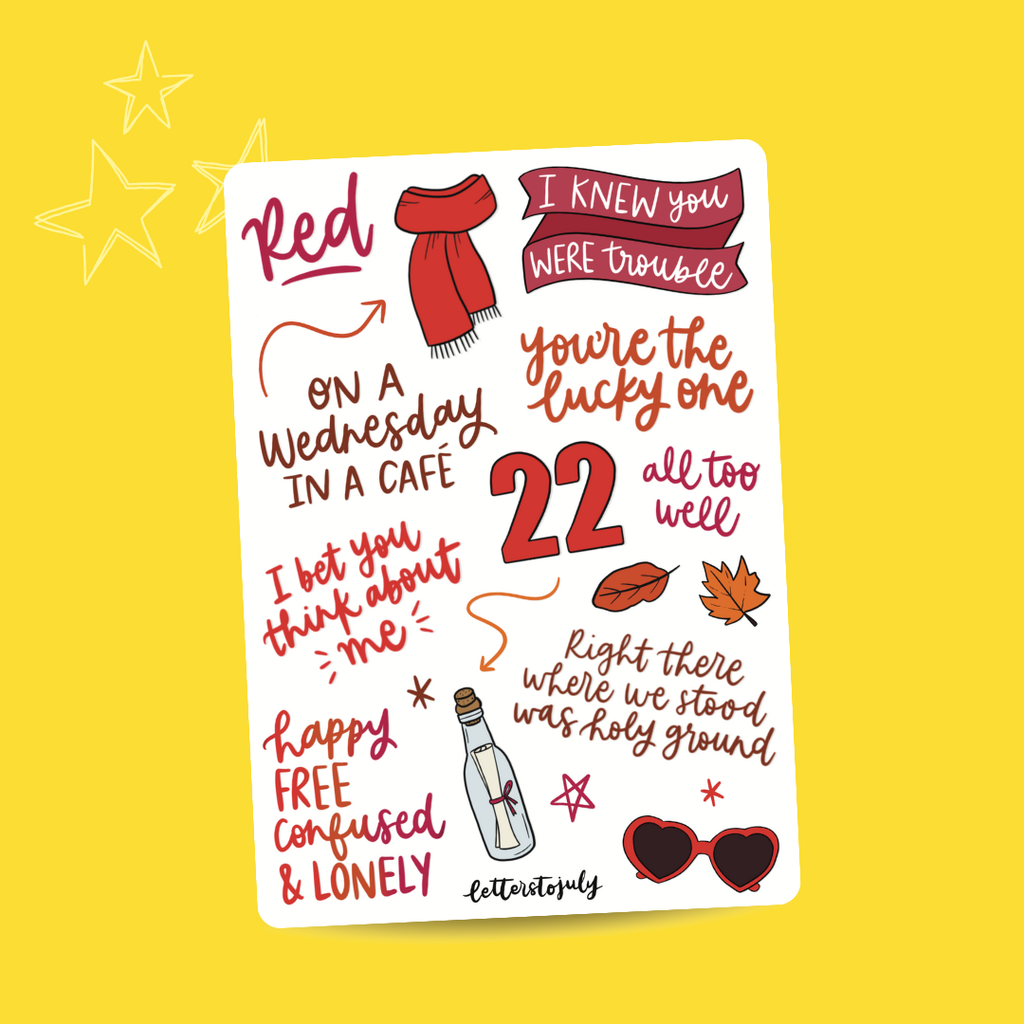 Red
I KNEW you
WERE trouble
you're the
lucky one
ON A
Wednesday
IN A CAFÉ
22
all too
well
I bet you
think about
me
Right there
where we stood
was holy ground
happy
FREE
confused
& LONELY
letterstojuly